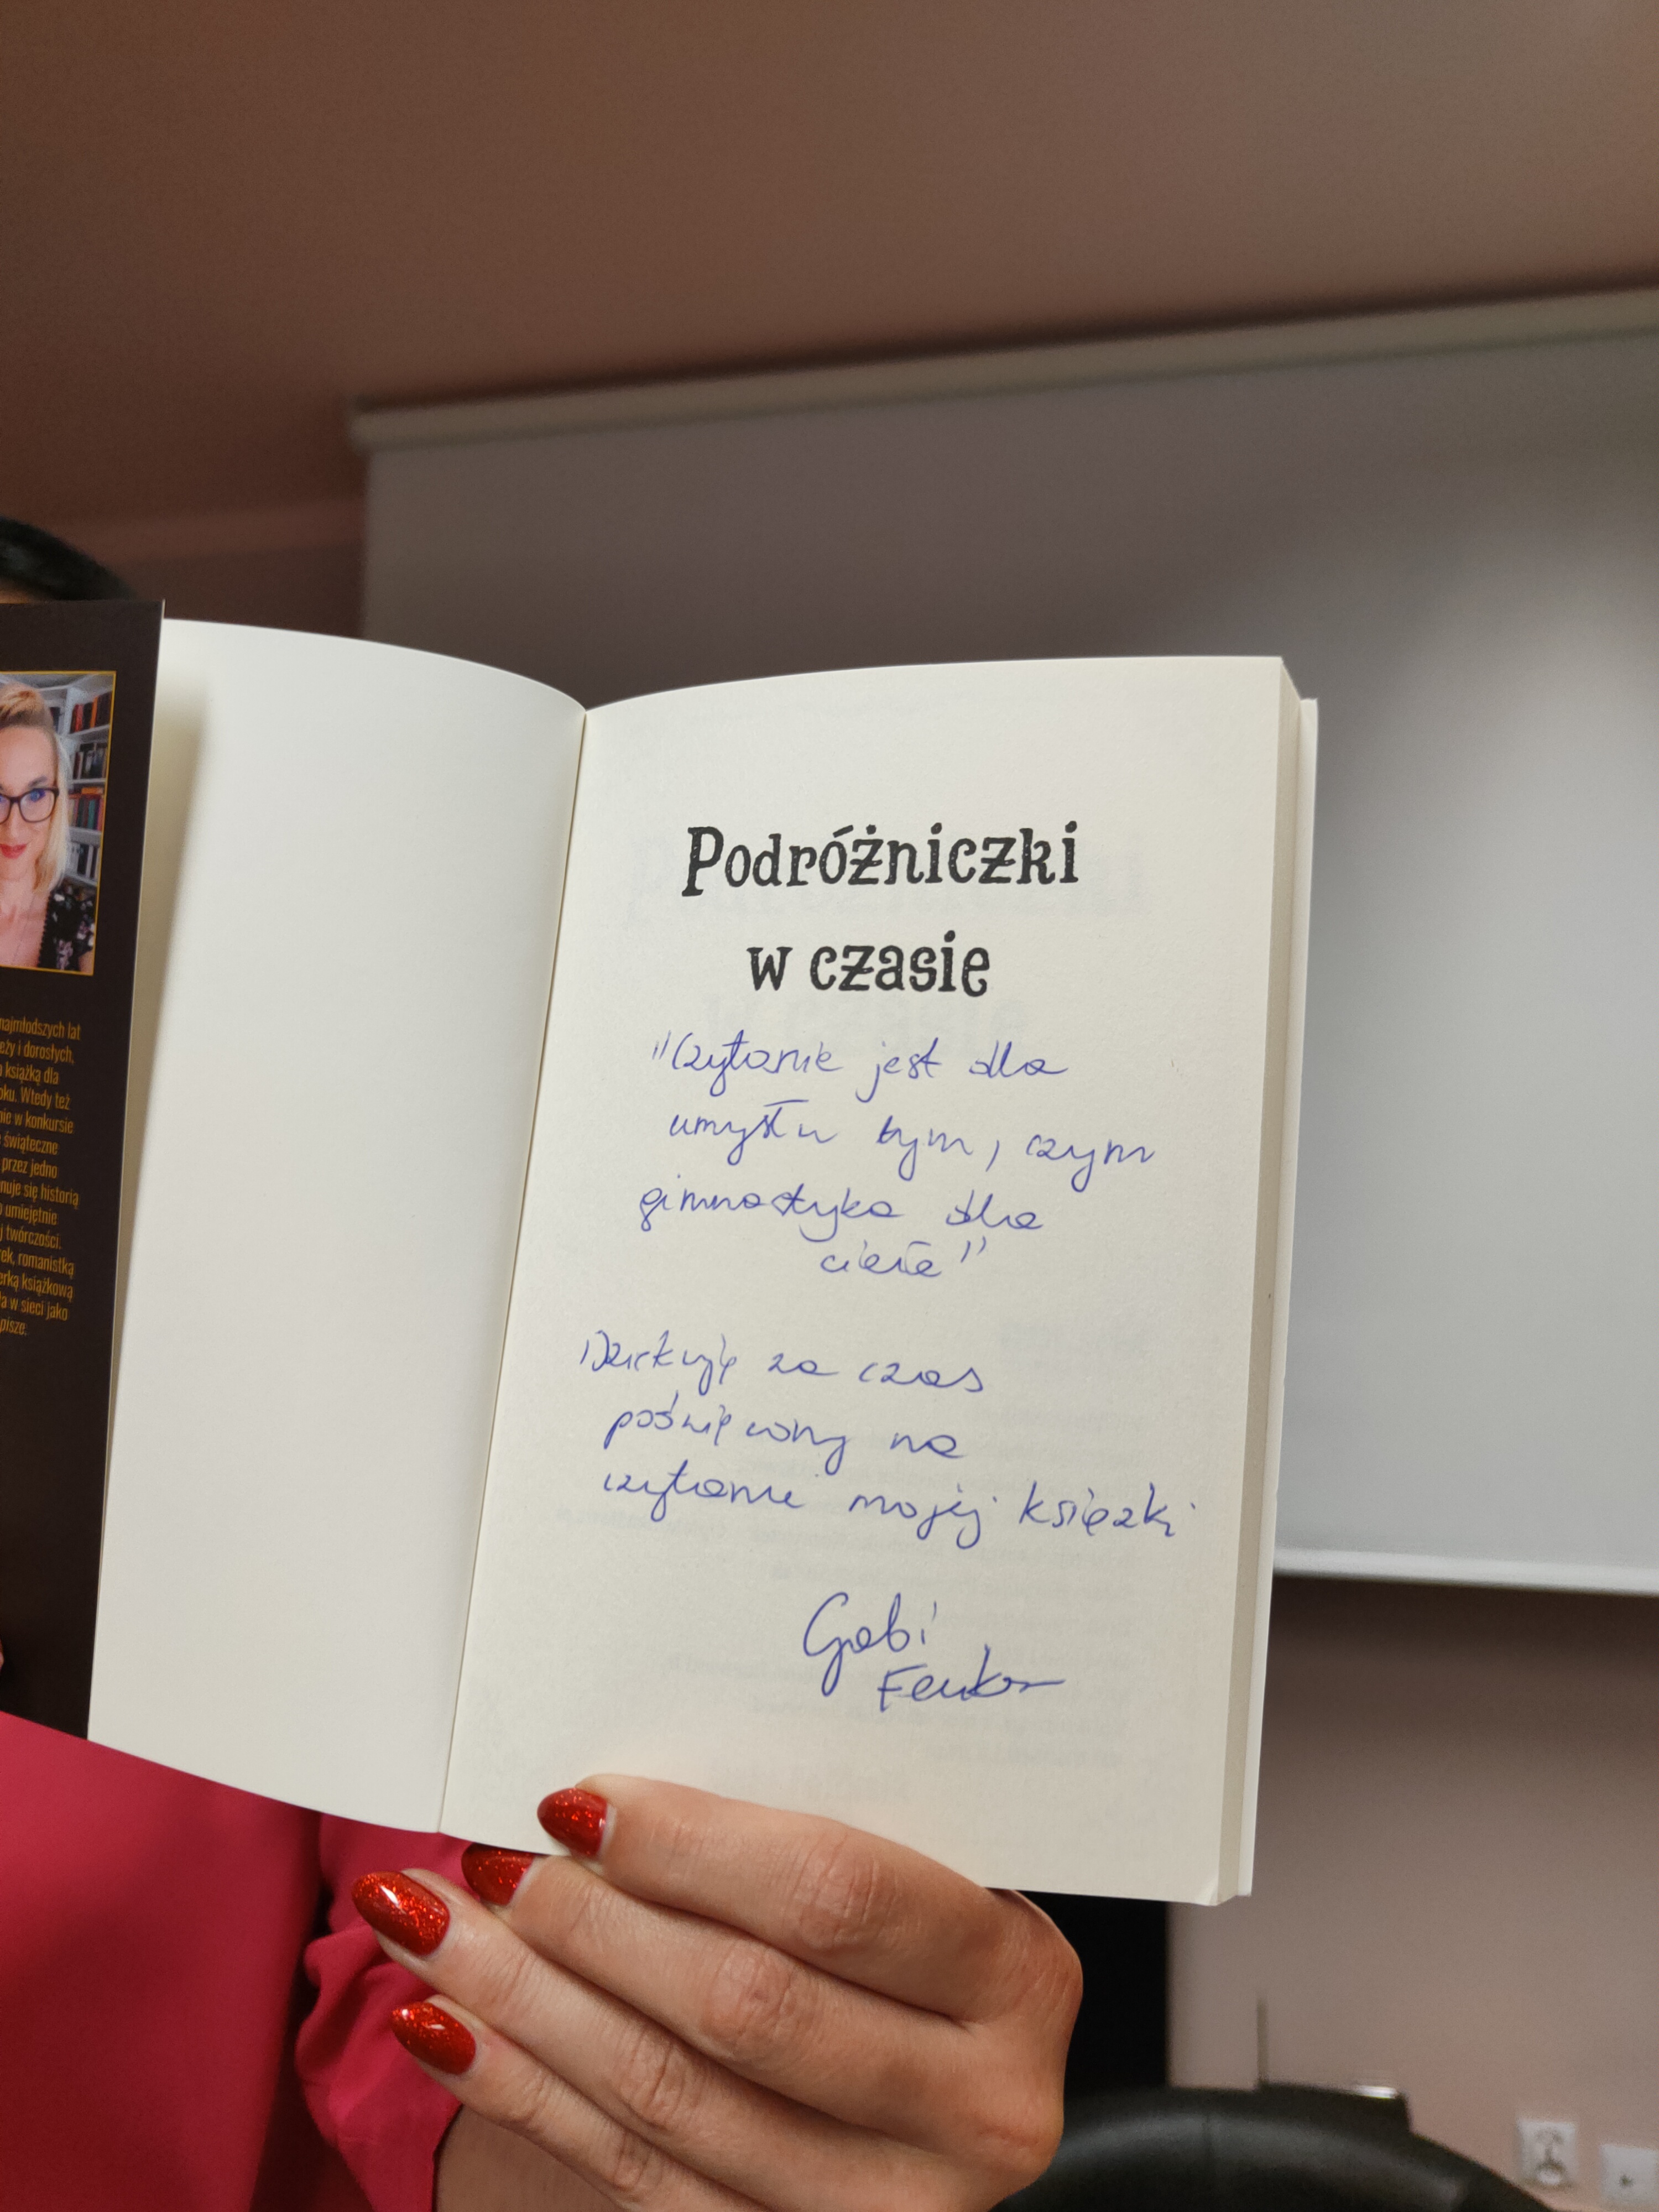 najmłodszych lat
eży i dorosłych,
książką dla
oku. Wtedy też
nie w konkursie
świąteczne
przez jedno
nuje się historią
umiejętnie
j twórczości.
rek, romanistką
erką książkową
a w sieci jako
pisze.
Podróżniczki
w czasie
"Czytanie jest dla
umysłu tym, czym
gimnastyka dla
ciała"
Dziękuję za czas
poświęcony na
czytanie mojej książki
Gabi